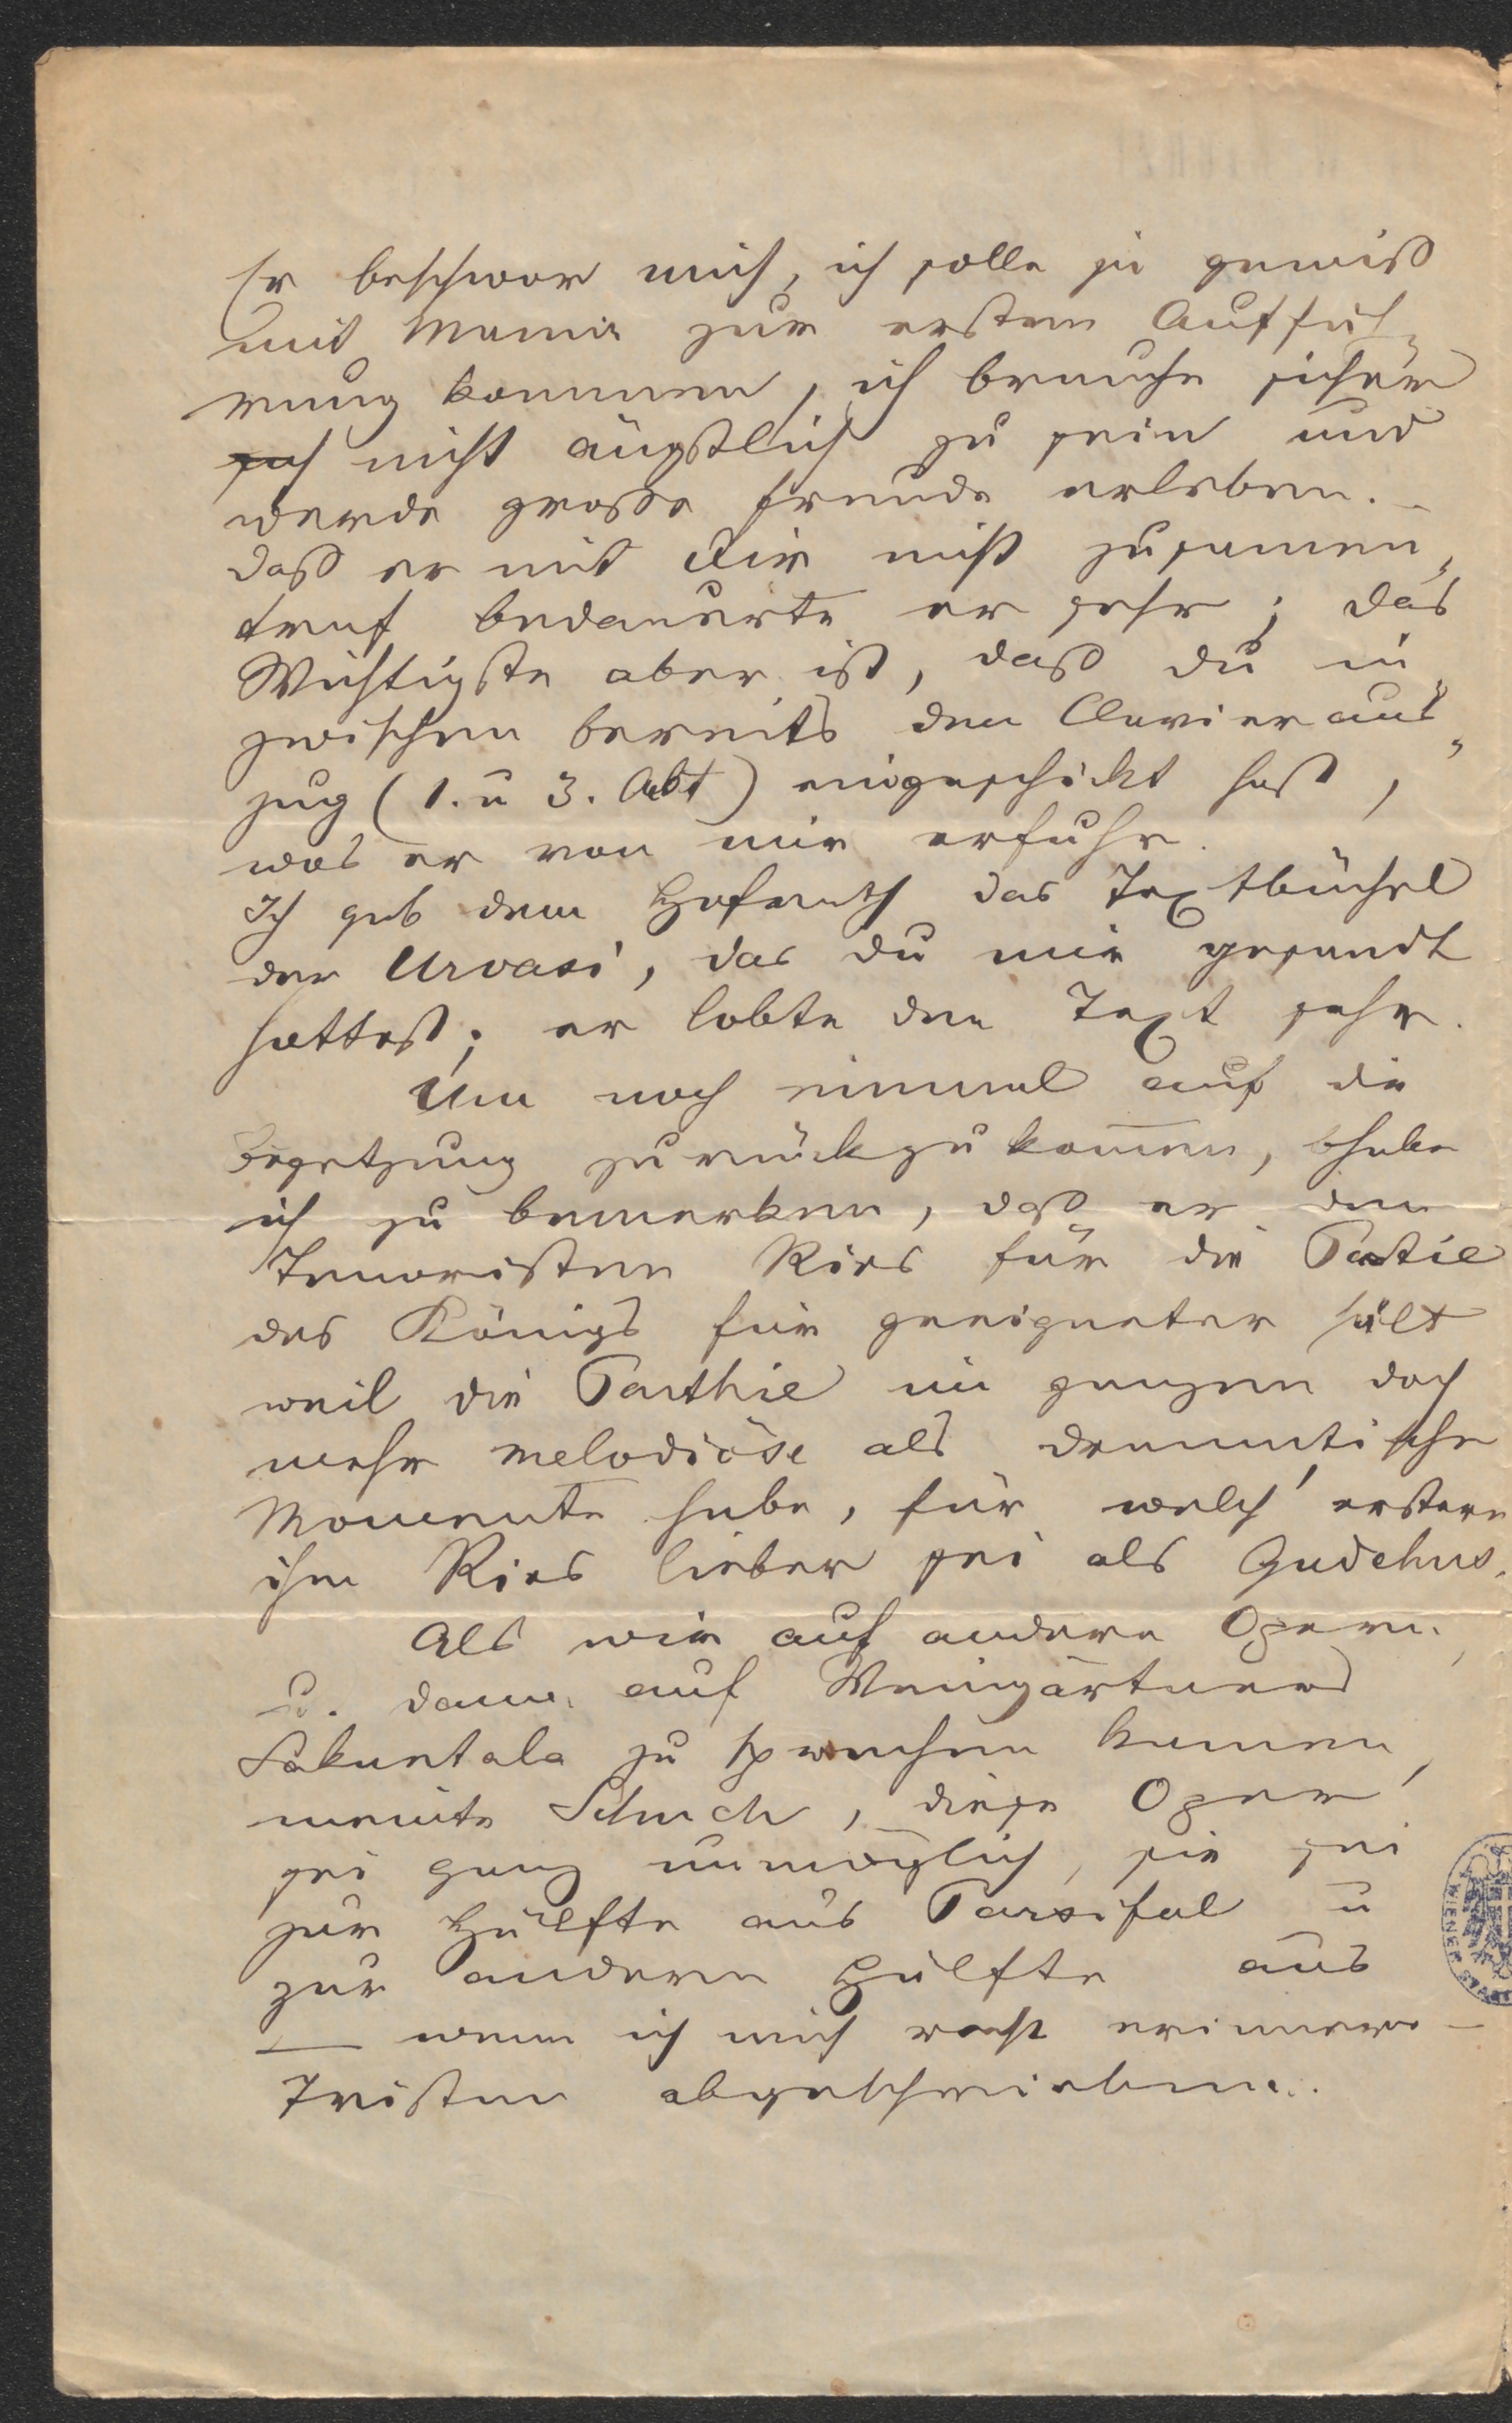 Er beschwor mich, ich solle ja gewiß
mit Mama zur ersten Auffüh-
rung kommen, ich brauche sicher
nicht ängstlich zu sein und
werde große Freude erleben. –
daß er mit Dir nicht zusamen-
traf bedauerte er sehr; das
Wichtigste aber ist, daß du in-
zwischen bereits den Clavieraus-
zug (1. u 3. Abt) eingeschickt hast,
was er von mir erfuhr.
Ich gab dem Hofrath das Textbüchel
der Urvasi, das du mir gesandt
hattest; er lobte den Text sehr.
Um noch einmal auf die
Besetzung zurückzukomen, habe
ich zu bemerken, daß er den
Tenoristen Ries für die Partie
des Königs für geeigneter hält
weil die Parthie im ganzen doch
mehr melodiöse als dramatische
Momente habe, für welch' erstere
ihm Ries lieber sei als Gudehus.
Als wir auf andere Opern,
u. dann auf Weingärtners
Sakuntala zu sprechen kamen,
meinte Schuch, diese Oper
sei ganz unmöglich, sie sei
zur Hälfte aus Parsifal u
zur anderen Hälfte aus
— wenn ich mich recht erinnere —
Tristan abgeschrieben.
WIENER STADT